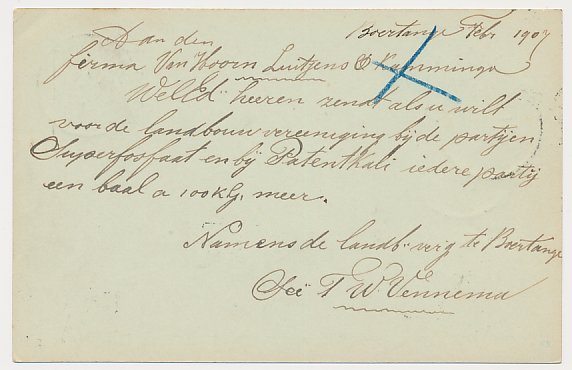 Boertange Febr 1907
Aan den
firma Van Hoorn Luitjens & Kamminga
WelEd. heeren zendt als u wilt
voor de landbouwvereeniging bij de partijen
Superfosfaat en bij Patentkali iedere partij
een baal a 100 kg. meer.
Namens de landb-verg te Boertange
Sec T W. Vennema